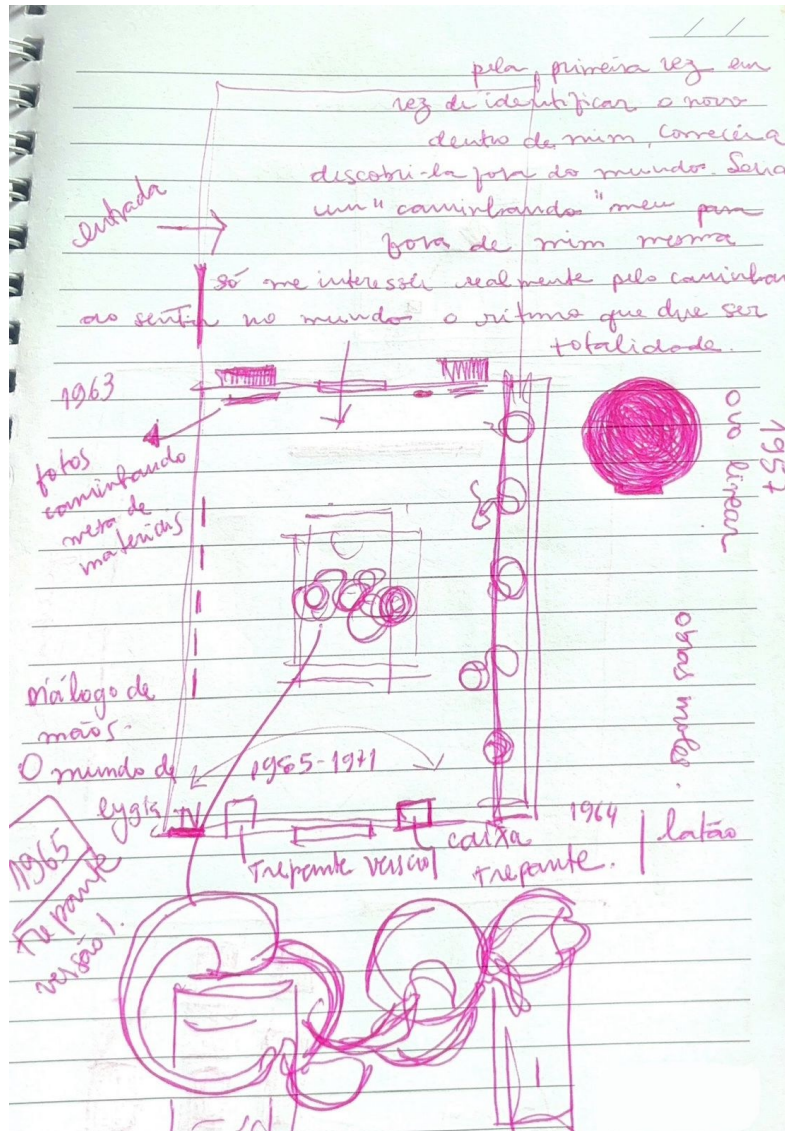 pela primeira vez em
vez de identificar o novo
dentro de mim, comecei a
descobri-la fora do mundo. Seria
um "caminhando" meu para
fora de mim mesma
só me interessei realmente pelo caminhar
ao sentir no mundo o ritmo que dve ser
totalidade.
entrada
1963
fotos
caminhando
mesa de
materiais
1957
ovo linear
obras moles.
Diálogo de
mãos.
O mundo de
lygia
TV
1965-1971
1964
latão
Trepante versão 1
caixa
trepante.
1965
Trepante
versão 1.